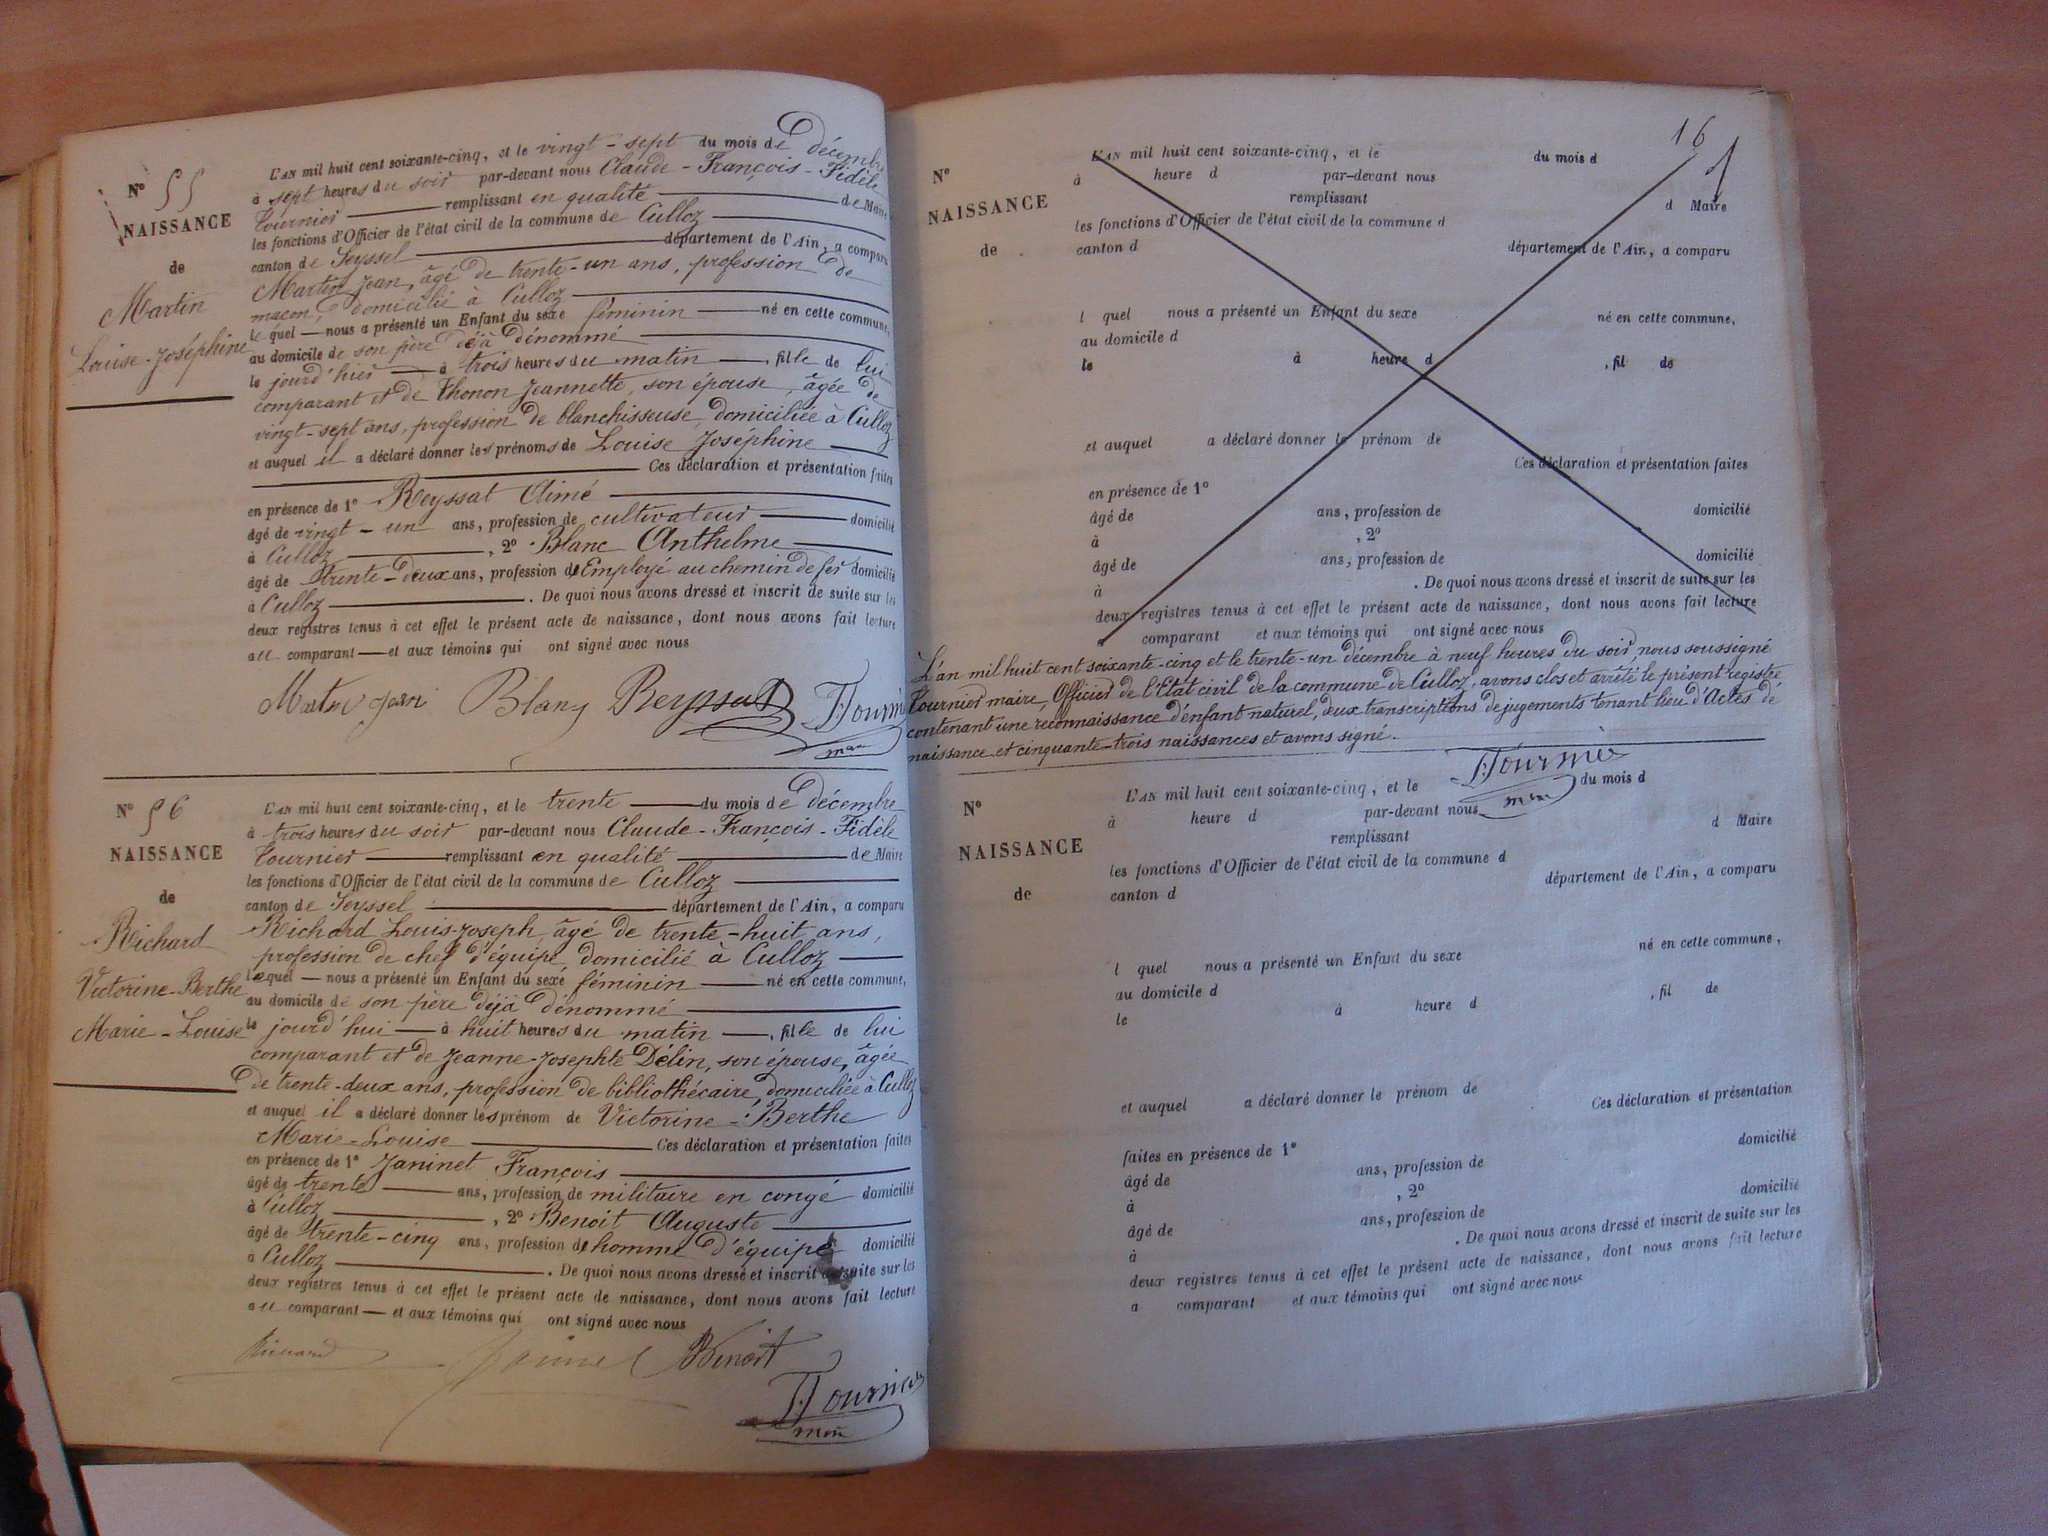 N° 55
NAISSANCE
de
Martin
Louise-Joséphine
L'AN mil huit cent soixante-cinq, et le vingt-sept du mois de décembre
à sept heures du soir par-devant nous Claude-François-Fidèle
Tournier remplissant en qualité de Maire
les fonctions d'Officier de l'état civil de la commune de Culloz
canton de Seyssel département de l'Ain, a comparu
Martin Jean, âgé de trente-un ans, profession de
maçon, domicilié à Culloz
lequel nous a présenté un Enfant du sexe féminin né en cette commune,
au domicile de son père déjà dénommé
le jourd'hier à trois heures du matin, fille de lui
comparant et de Thonon Jeannette, son épouse, âgée de
vingt-sept ans, profession de blanchisseuse, domiciliée à Culloz
et auquel il a déclaré donner les prénoms de Louise Joséphine
Ces déclaration et présentation faites
en présence de 1° Reyssat Aimé
âgé de vingt-un ans, profession de cultivateur domicilié
à Culloz, 2° Blanc Anthelme
âgé de trente-deux ans, profession d'Employé au chemin de fer domicilié
à Culloz. De quoi nous avons dressé et inscrit de suite sur les
deux registres tenus à cet effet le présent acte de naissance, dont nous avons fait lecture
au comparant et aux témoins qui ont signé avec nous
Martin Jean Blanc Reyssat F. Tournier
maire
N° 56
NAISSANCE
de
Richard
Victorine-Berthe
Marie-Louise
L'AN mil huit cent soixante-cinq, et le trente du mois de décembre
à trois heures du soir par-devant nous Claude-François-Fidèle
Tournier remplissant en qualité de Maire
les fonctions d'Officier de l'état civil de la commune de Culloz
canton de Seyssel département de l'Ain, a comparu
Richard Louis-Joseph, âgé de trente-huit ans,
profession de chef d'équipe, domicilié à Culloz
lequel nous a présenté un Enfant du sexe féminin né en cette commune,
au domicile de son père déjà dénommé
le jourd'hui à huit heures du matin, fille de lui
comparant et de Jeanne-Josephte Délin, son épouse, âgée
de trente-deux ans, profession de bibliothécaire, domiciliée à Culloz
et auquel il a déclaré donner les prénom de Victorine-Berthe
Marie-Louise Ces déclaration et présentation faites
en présence de 1° Janinet François
âgé de trente ans, profession de militaire en congé domicilié
à Culloz, 2° Benoit Auguste
âgé de trente-cinq ans, profession d'homme d'équipe domicilié
à Culloz. De quoi nous avons dressé et inscrit de suite sur les
deux registres tenus à cet effet le présent acte de naissance, dont nous avons fait lecture
au comparant et aux témoins qui ont signé avec nous
Richard Janinet Benoit
F. Tournier
maire
16
N°
NAISSANCE
de
L'AN mil huit cent soixante-cinq, et le du mois d
à heure d par-devant nous
remplissant d Maire
les fonctions d'Officier de l'état civil de la commune d
canton d département de l'Ain, a comparu
l quel nous a présenté un Enfant du sexe né en cette commune,
au domicile d
le à heure d , fil de
et auquel a déclaré donner le prénom de
Ces déclaration et présentation faites
en présence de 1°
âgé de ans, profession de domicilié
à , 2°
âgé de ans, profession de domicilié
à . De quoi nous avons dressé et inscrit de suite sur les
deux registres tenus à cet effet le présent acte de naissance, dont nous avons fait lecture
a comparant et aux témoins qui ont signé avec nous
L'an mil huit cent soixante-cinq et le trente-un décembre à neuf heures du soir nous soussigné
Tournier maire, Officier de l'Etat civil de la commune de Culloz, avons clos et arrêté le présent registre
contenant une reconnaissance d'enfant naturel, deux transcriptions de jugements tenant lieu d'Actes de
naissance et cinquante-trois naissances et avons signé.
F. Tournier
maire
N°
NAISSANCE
de
L'AN mil huit cent soixante-cinq, et le du mois d
à heure d par-devant nous
remplissant d Maire
les fonctions d'Officier de l'état civil de la commune d
canton d département de l'Ain, a comparu
l quel nous a présenté un Enfant du sexe né en cette commune,
au domicile d
le à heure d , fil de
et auquel a déclaré donner le prénom de
Ces déclaration et présentation
faites en présence de 1°
âgé de ans, profession de domicilié
à , 2°
âgé de ans, profession de domicilié
à . De quoi nous avons dressé et inscrit de suite sur les
deux registres tenus à cet effet le présent acte de naissance, dont nous avons fait lecture
a comparant et aux témoins qui ont signé avec nous